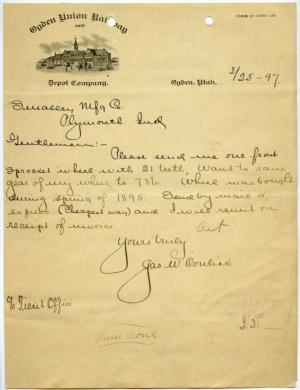 Ogden Union Railway
and
Depot Company.
Ogden, Utah. 3/25-97
Smalley Mfg Co.
Plymouth Ind
Gentlemen:-
Please send me one front
sprocket wheel with 21 teeth, Want to raise
gear of my wheel to 73½. Wheel was bought
during spring of 1895. Send by mail or
express (cheapest way) and I will remit on
receipt of invoice
Yours truly
Jas W
c/o Ticket Office